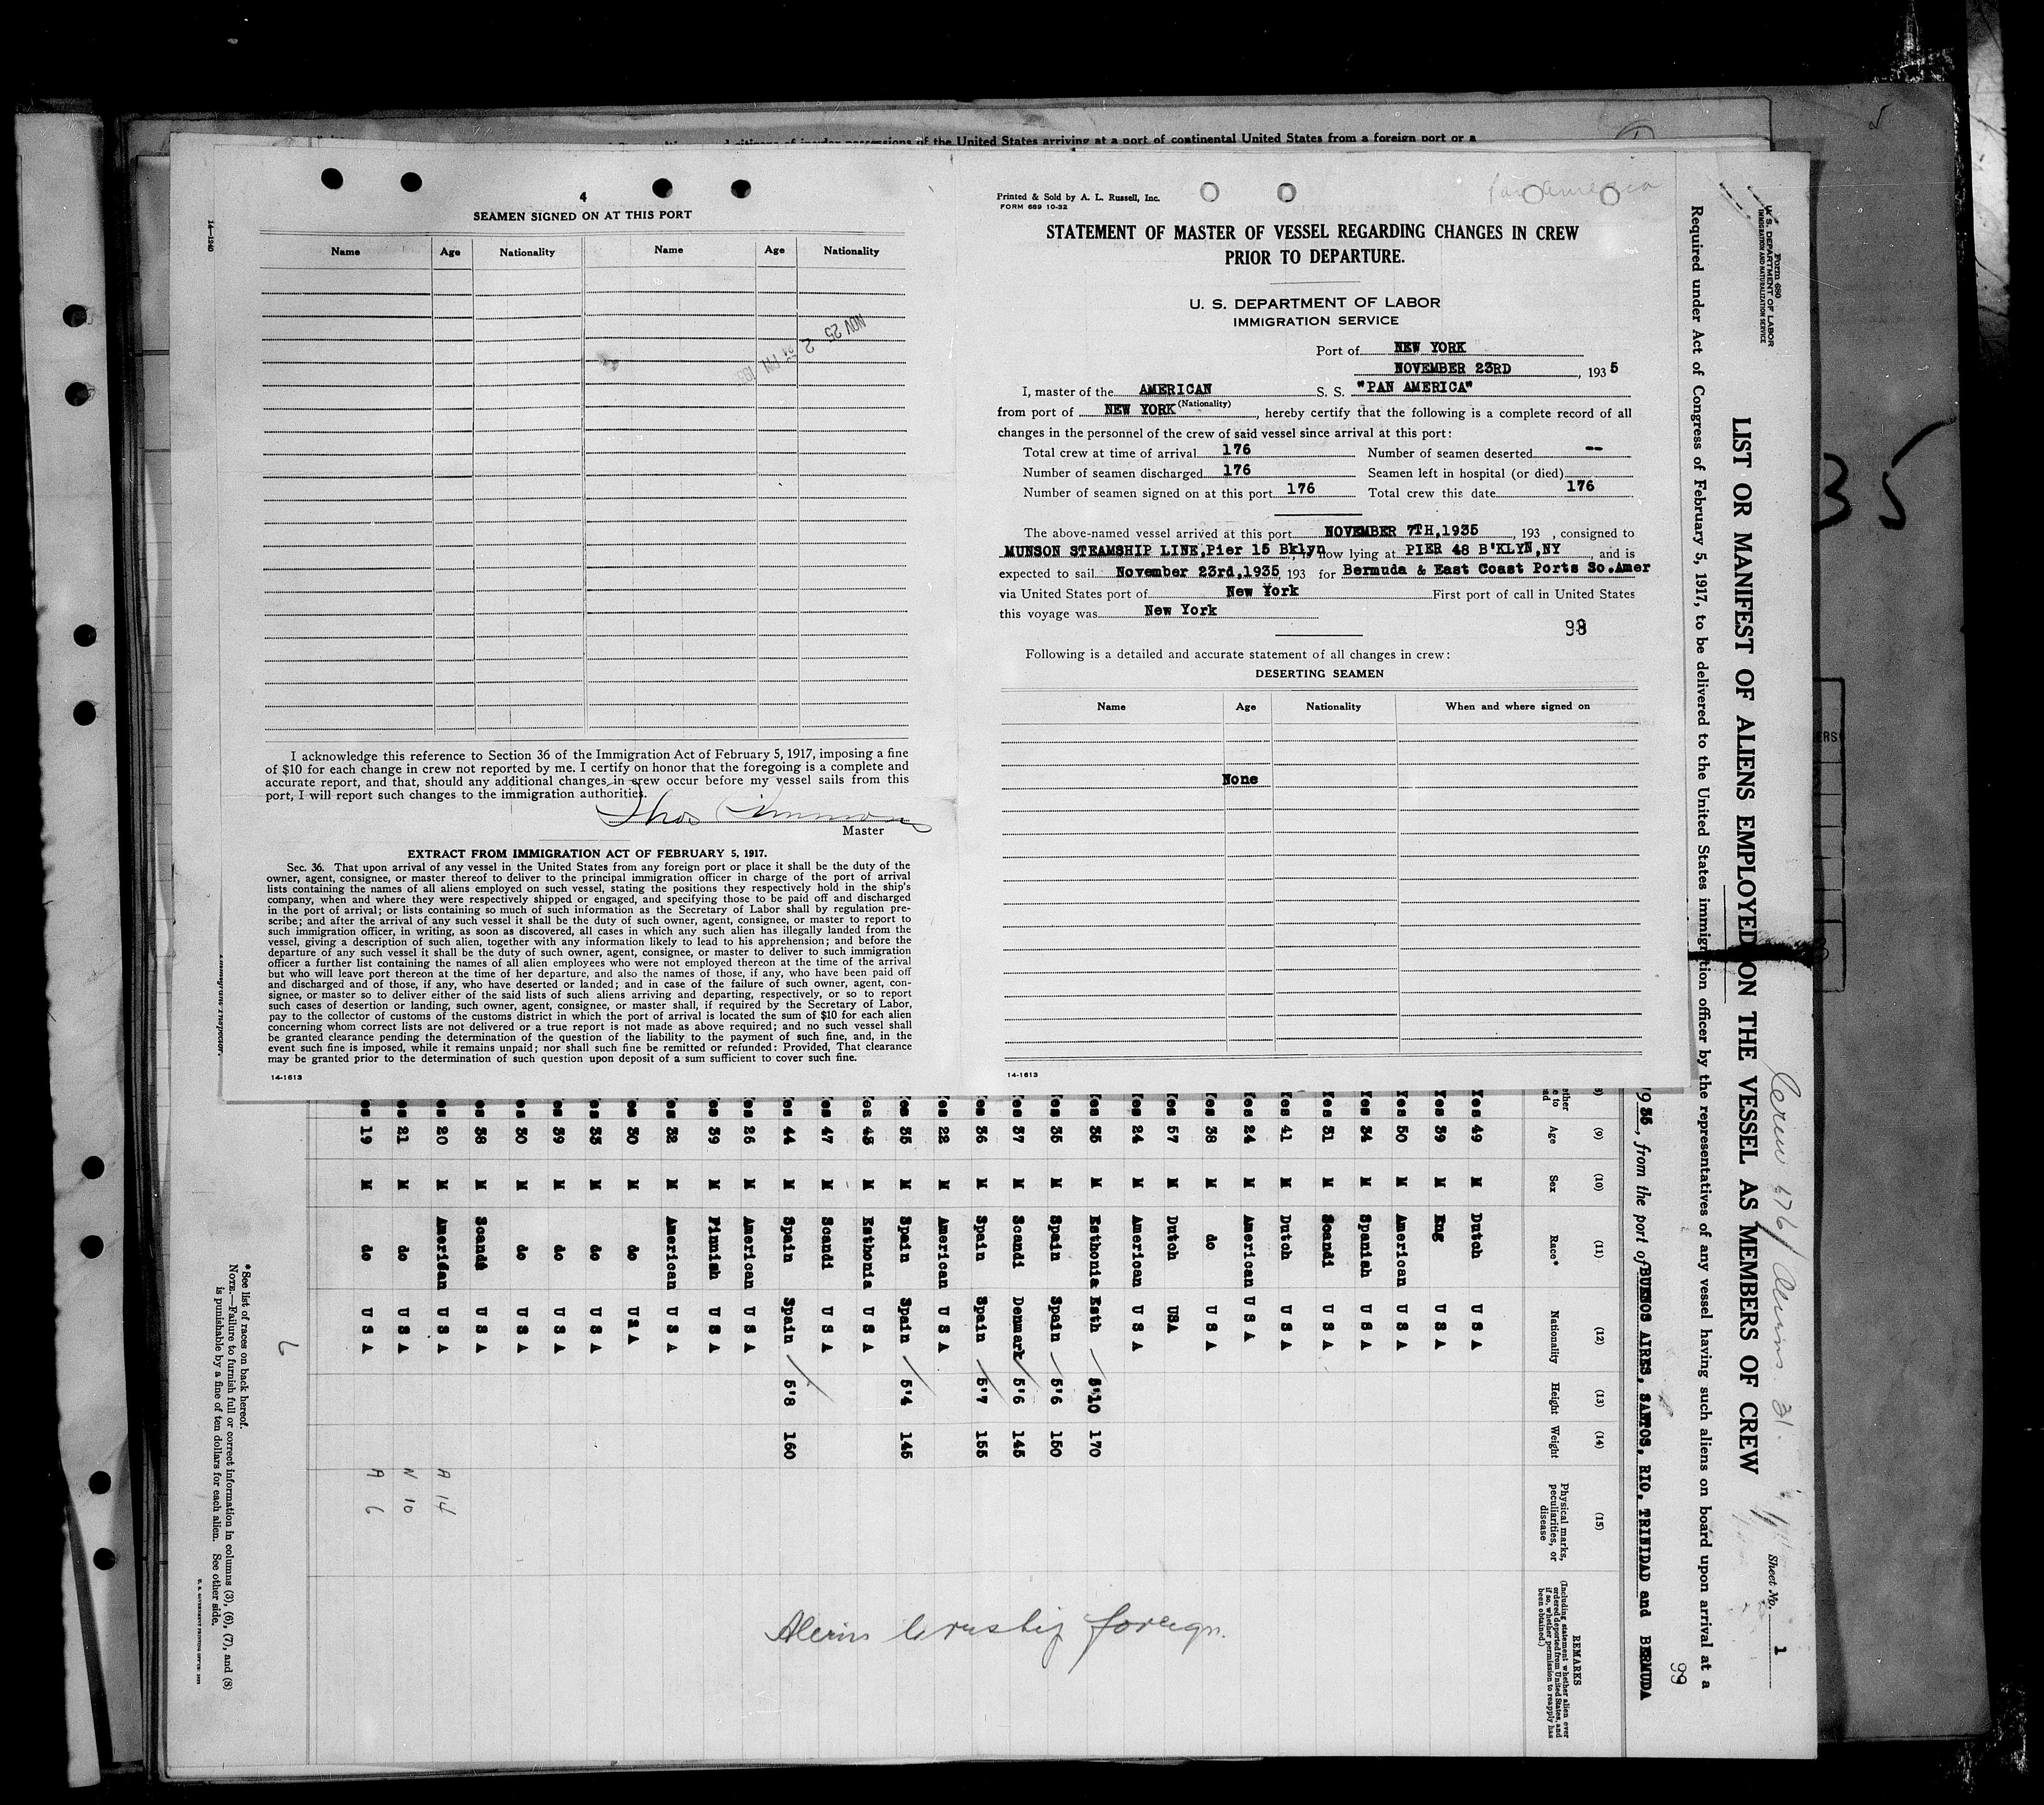 4
SEAMEN SIGNED ON AT THIS PORT
Name Age Nationality Name Age Nationality
NOV 25 2
14—1240
I acknowledge this reference to Section 36 of the Immigration Act of February 5, 1917, imposing a fine
of $10 for each change in crew not reported by me. I certify on honor that the foregoing is a complete and
accurate report, and that, should any additional changes in crew occur before my vessel sails from this
port, I will report such changes to the immigration authorities.
Thos Simmons
Master
EXTRACT FROM IMMIGRATION ACT OF FEBRUARY 5, 1917.
Sec. 36. That upon arrival of any vessel in the United States from any foreign port or place it shall be the duty of the
owner, agent, consignee, or master thereof to deliver to the principal immigration officer in charge of the port of arrival
lists containing the names of all aliens employed on such vessel, stating the positions they respectively hold in the ship's
company, when and where they were respectively shipped or engaged, and specifying those to be paid off and discharged
in the port of arrival; or lists containing so much of such information as the Secretary of Labor shall by regulation pre-
scribe; and after the arrival of any such vessel it shall be the duty of such owner, agent, consignee, or master to report to
such immigration officer, in writing, as soon as discovered, all cases in which any such alien has illegally landed from the
vessel, giving a description of such alien, together with any information likely to lead to his apprehension; and before the
departure of any such vessel it shall be the duty of such owner, agent, consignee, or master to deliver to such immigration
officer a further list containing the names of all alien employees who were not employed thereon at the time of the arrival
but who will leave port thereon at the time of her departure, and also the names of those, if any, who have been paid off
and discharged and of those, if any, who have deserted or landed; and in case of the failure of such owner, agent, con-
signee, or master so to deliver either of the said lists of such aliens arriving and departing, respectively, or so to report
such cases of desertion or landing, such owner, agent, consignee, or master shall, if required by the Secretary of Labor,
pay to the collector of customs of the customs district in which the port of arrival is located the sum of $10 for each alien
concerning whom correct lists are not delivered or a true report is not made as above required; and no such vessel shall
be granted clearance pending the determination of the question of the liability to the payment of such fine, and, in the
event such fine is imposed, while it remains unpaid; nor shall such fine be remitted or refunded: Provided, That clearance
may be granted prior to the determination of such question upon deposit of a sum sufficient to cover such fine.
14-1613
Printed & Sold by A. L. Russell, Inc.
FORM 689 10-32
Pan America
STATEMENT OF MASTER OF VESSEL REGARDING CHANGES IN CREW
PRIOR TO DEPARTURE.
U. S. DEPARTMENT OF LABOR
IMMIGRATION SERVICE
Port of NEW YORK
NOVEMBER 23RD, 1935
I, master of the AMERICAN S. S. "PAN AMERICA"
(Nationality)
from port of NEW YORK, hereby certify that the following is a complete record of all
changes in the personnel of the crew of said vessel since arrival at this port:
Total crew at time of arrival 176 Number of seamen deserted --
Number of seamen discharged 176 Seamen left in hospital (or died)
Number of seamen signed on at this port 176 Total crew this date 176
The above-named vessel arrived at this port NOVEMBER 7TH,1935, 193 , consigned to
MUNSON STEAMSHIP LINE,Pier 15 Bklyn, is now lying at PIER 48 B'KLYN,NY, and is
expected to sail November 23rd,1935, 193 for Bermuda & East Coast Ports So.Amer
via United States port of New York First port of call in United States
this voyage was New York
98
Following is a detailed and accurate statement of all changes in crew:
DESERTING SEAMEN
Name Age Nationality When and where signed on
None
14-1613
of the United States arriving at a port of continental United States from a foreign port or a
Form 680
U. S. DEPARTMENT OF LABOR
IMMIGRATION AND NATURALIZATION SERVICE
LIST OR MANIFEST OF ALIENS EMPLOYED ON THE VESSEL AS MEMBERS OF CREW
Sheet No. 1
Required under Act of Congress of February 5, 1917, to be delivered to the United States immigration officer by the representatives of any vessel having such aliens on board upon arrival at a
99
1935, from the port of BUENOS AIRES, SANTOS, RIO, TRINIDAD and BERMUDA
(9) (10) (11) (12) (13) (14) (15)
Age Sex Race* Nationality Height Weight Physical marks, peculiarities, or disease
REMARKS
(Including statement whether alien ever ordered deported from United States, and if so, whether permission to reapply has been obtained.)
Yes 49 M Dutch U S A
Yes 39 M Eng U S A
Yes 50 M American U S A
Yes 34 M Spanish U S A
Yes 31 M Scandi U S A
Yes 41 M Dutch U S A
Yes 24 M American U S A
Yes 38 M do U S A
Yes 57 M Dutch USA
Yes 24 M American U S A
Yes 35 M Esthonia Esth 5'10 170
Yes 35 M Spain Spain 5'6 150
Yes 37 M Scandi Denmark 5'6 145
es 36 M Spain Spain 5'7 155
Yes 22 M American U S A
es 35 M Spain Spain 5'4 145
es 43 M Esthonia U S A
es 47 M Scandi U S A
es 44 M Spain Spain 5'8 160
es 26 M American U S A
es 39 M Finnish U S A
es 32 M American U S A
es 30 M do USA
es 33 M do U S A
es 39 M do U S A
es 30 M do U S A
es 38 M Scandi U S A
es 20 M American U S A A 14
es 21 M do U S A N 10
es 19 M do U S A A 6
foreign.
6
*See list of races on back hereof.
NOTE.—Failure to furnish full or correct information in columns (3), (6), (7), and (8)
is punishable by a fine of ten dollars for each alien. See other side.
Immigrant Inspector.
35
ERS